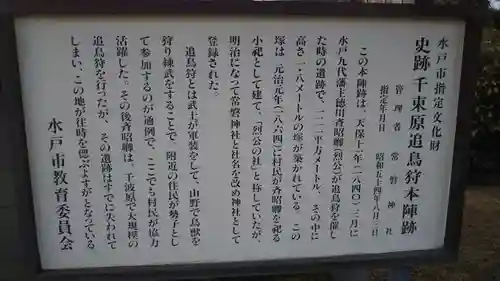 水戸市指定文化財
史跡 千束原追鳥狩本陣跡
管理者 常磐神社
指定年月日 昭和五十四年八月三日
この本陣跡は、天保十一年(一八四〇)三月に
水戸九代藩主徳川斉昭卿(烈公)が追鳥狩を催し
た時の遺跡で、一二二平方メートル、その中に
高さ一・八メートルの塚が築かれている。この
塚は、元治元年(一八六四)に村民が斉昭卿を祀る
小祀として建て、「烈公の社」と称していたが、
明治になって常磐神社と社名を改め神社として
登録された。
追鳥狩とは武士が軍装をして、山野で鳥獣を
狩り練武をすることで、附近の住民が勢子とし
て参加するのが通例で、ここでも村民が協力
活躍した。その後斉昭卿は、千波原で大規模の
追鳥狩を行ったが、その遺跡はすでに失われて
しまい、この地が往時を偲ぶよすがとなっている
水戸市教育委員会